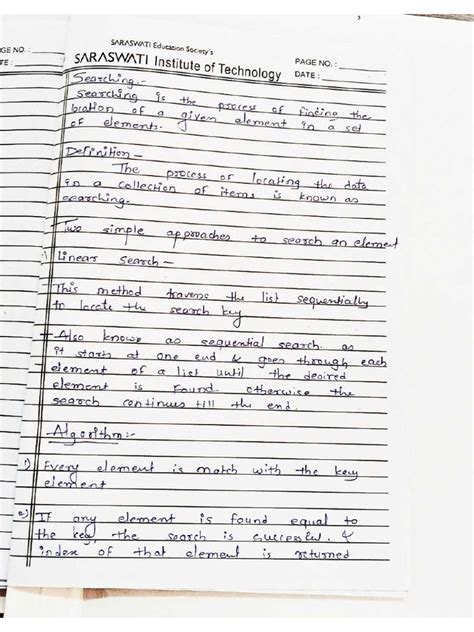 SARASWATI Education Society's
GE NO. :
SARASWATI Institute of Technology
PAGE NO. :
TE :
DATE :
Searching:-
Searching is the process of finding the
location of a given element in a set
of elements.
Definition -
The process of locating the data
in a collection of items is known as
searching.
Two simple approaches to search an element
1) Linear Search -
This method traverse the list sequentially
to locate the search key
Also known as sequential search. as
it starts at one end & goes through each
element of a list until the desired
element is found. otherwise the
search continues till the end.
Algorithm:-
1) Every element is match with the key
element
2) If any element is found equal to
the key, the search is successful. &
index of that element is returned